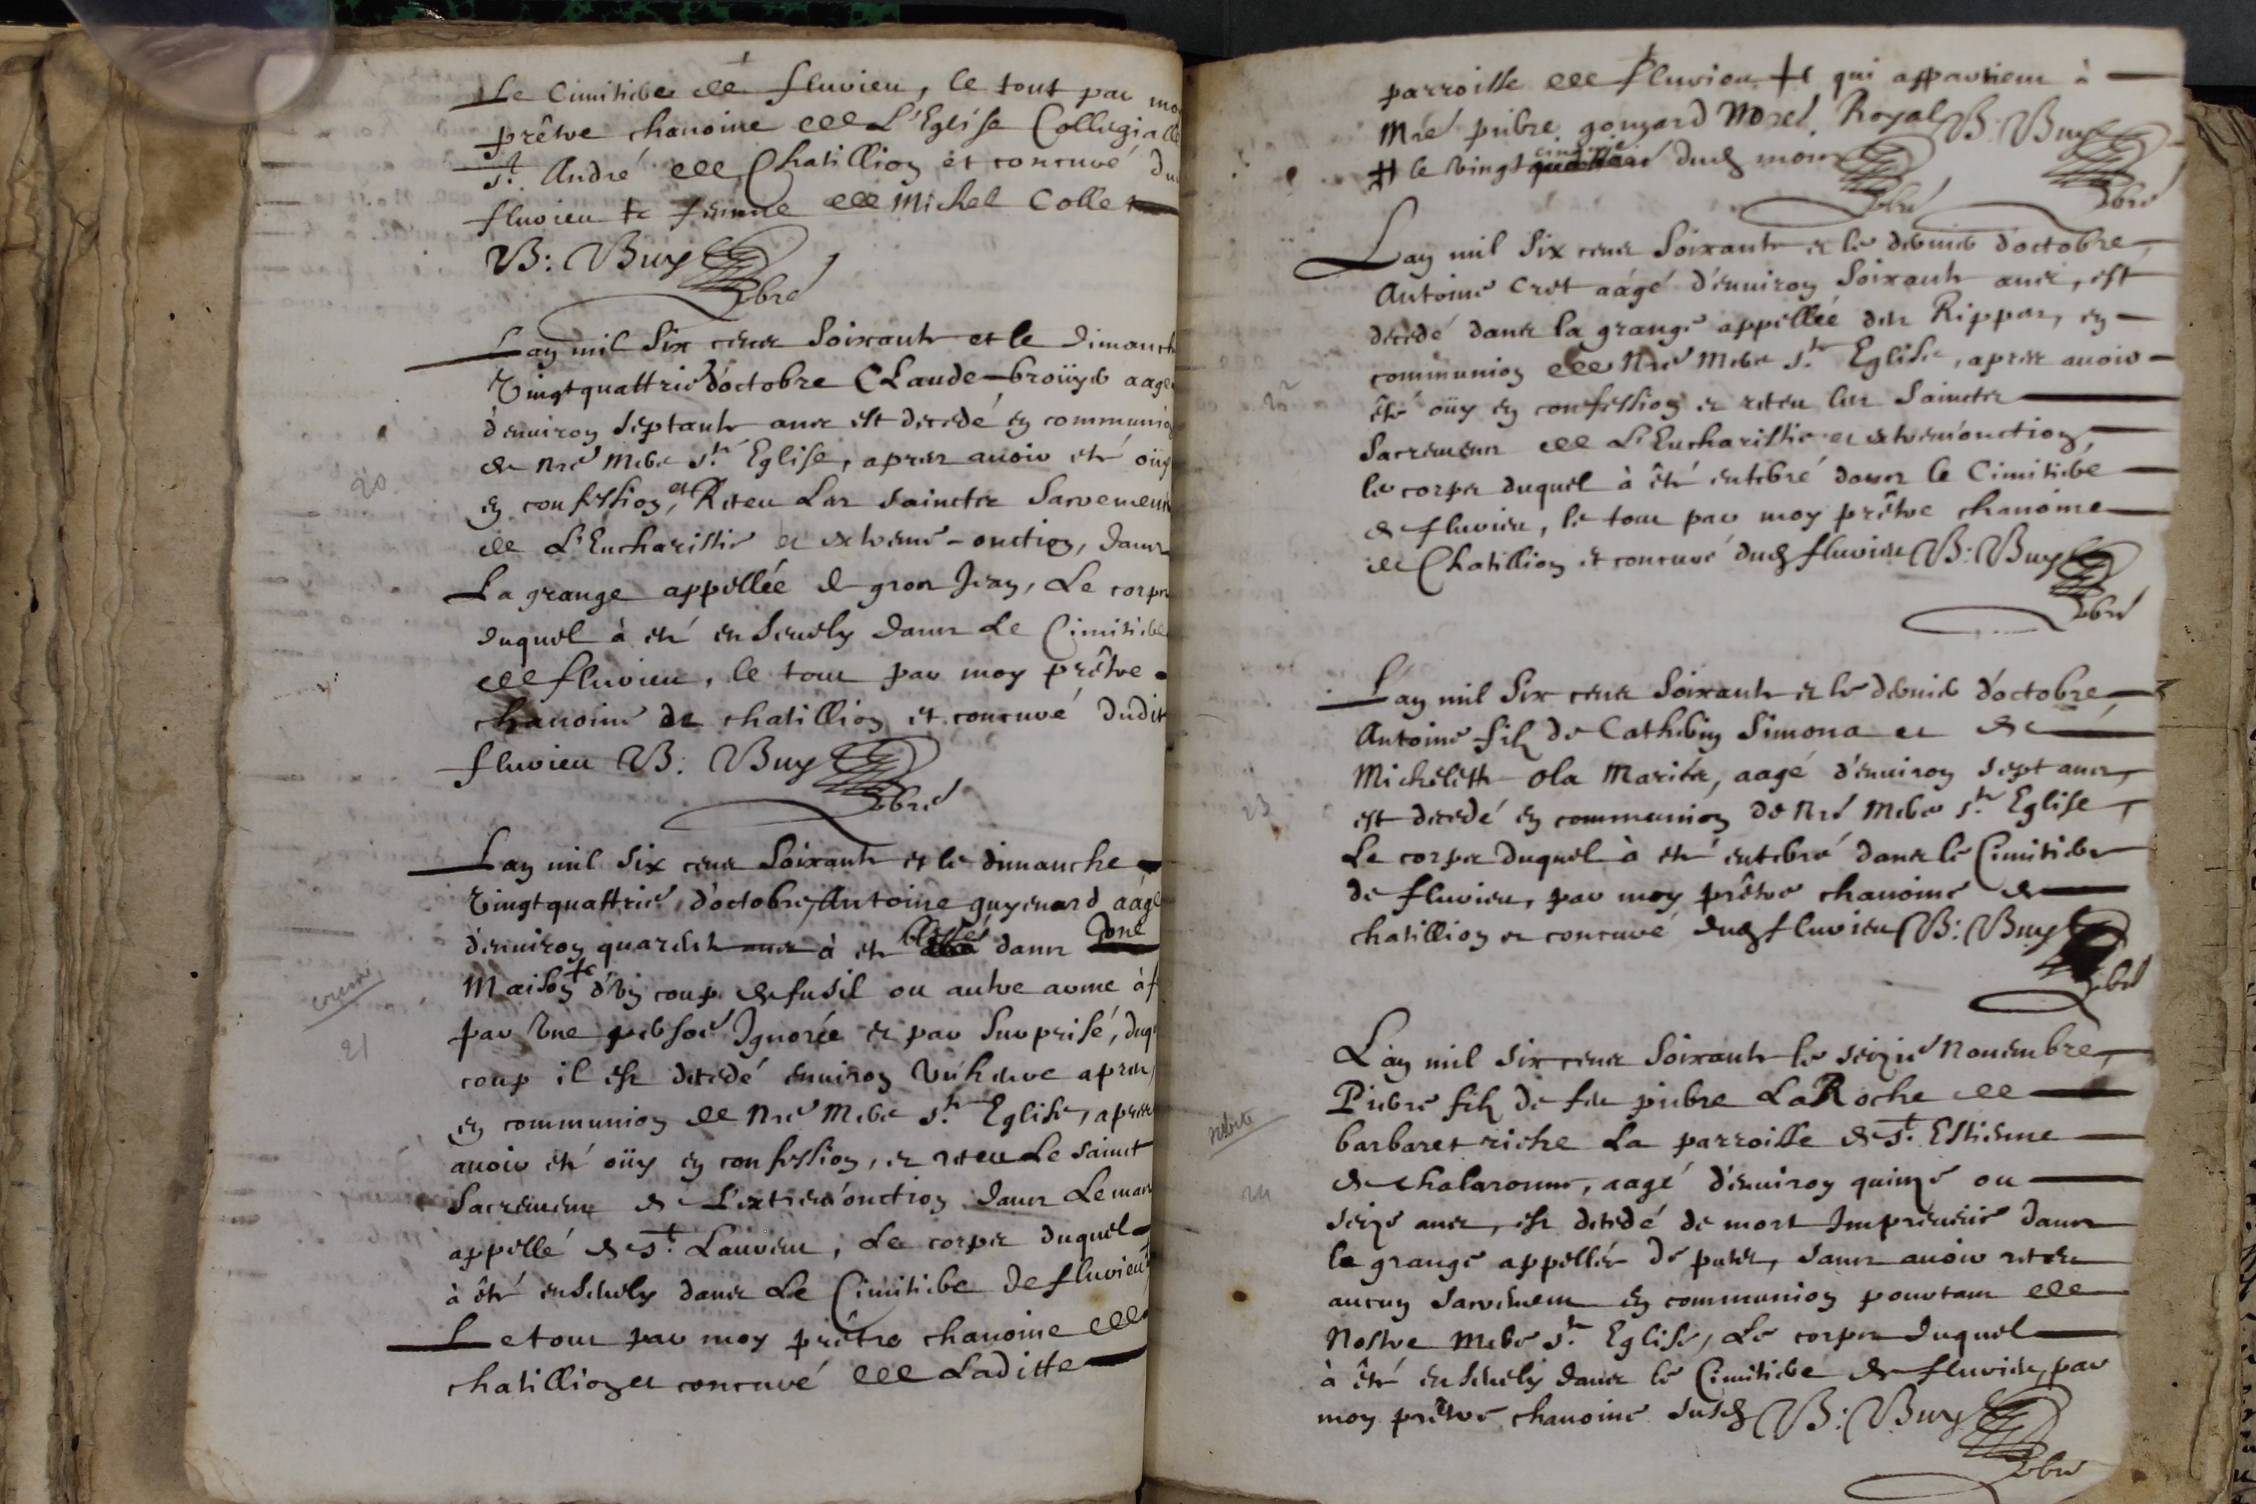 Le Cimitiere de fluvieu, le tout par moy
prêtre chanoine de L'Eglise Collegialle
st. André de Chatillion et concuré du
fluvieu + femme de Michel Collet
B: Buy
pbre
Lan mil six cens soixante et le dimanche
vingtquattrie d'octobre CLaude broüyer aagé
d'environ septante ans est decedé en communion
de nre mere ste Eglise, apres avoir eté oüy
en confession, et Receu Les saincts Sacremens
de L'Eucharistie et extreme-onction, dans
La grange appellée de gron Jean, Le corps
duquel à eté ensevely dans Le Cimitiere
de fluvieu, le tout par moy prêtre
chanoine de chatillion et concuré dudit
fluvieu B: Buy
pbre
20
Lan mil six cens soixante et le dimanche
vingtquattrie d'octobre, Antoine guyenard aagé
d'environ quarente ans à eté blessé dans
Maison d'un coup de fusil ou autre arme à f
par une persoe Ignorée et par surprise, duq
coup il est decedé environ un'heure apres,
en communion de nre Mere ste Eglise, apres
avoir eté oüy en confession, et receu Le sainct
Sacrement de L'extrem'onction dans Le mas
appellé de st. Laurent, Le corps duquel
à êté ensevely dans Le Cimitiere de fluvieu
Le tout par moy prêtre chanoine de
chatillion et concuré de Laditte
21
parroisse de fluvieu + qui appartient à
Mre pierre gonyard Notre Royal B: Buy
# le vingt cinqie dud mois
pbre pbre
Lan mil six cens soixante et le dernier d'octobre,
Antoine Cret aagé d'environ soixante ans, est
decedé dans la grange appellée des Rippes, en
communion de Nre Mere ste Eglise, apres avoir
êté oüy en confession et receu les saincts
Sacremens de L'Eucharistie et extrem'onction,
le corps duquel à êté enterré dans le Cimitiere
de fluvieu, le tout par moy prêtre chanoine
de Chatillion et concuré dud fluvieu B: Buy
pbre
Lan mil six cens soixante et le dernier d'octobre,
Antoine fils de Catherin Simona et de
Michelette ola Mariés, aagé d'environ sept ans,
est decedé en communion de Nre Mere ste Eglise,
Le corps duquel à eté enterré dans le Cimitiere
de fluvieu, par moy prêtre chanoine de
chatillion et concuré dud fluvieu B: Buy
pbre
23
L'an mil six cens soixante le seizie Novembre,
Pierre fils de feu pierre LaRoche de
barbaret riche La parroisse de st. Estienne
de chalaronne, aagé d'environ quinze ou
seize ans, est decedé de mort Impreveüe dans
la grange appellée de putet, sans avoir receu
aucun sacrement en communion pourtant de
Nostre mere ste Eglise, Le corps duquel
à êté ensevely dans le Cimitiere de fluvieu, par
moy prêtre chanoine susd B: Buy
pbre
24